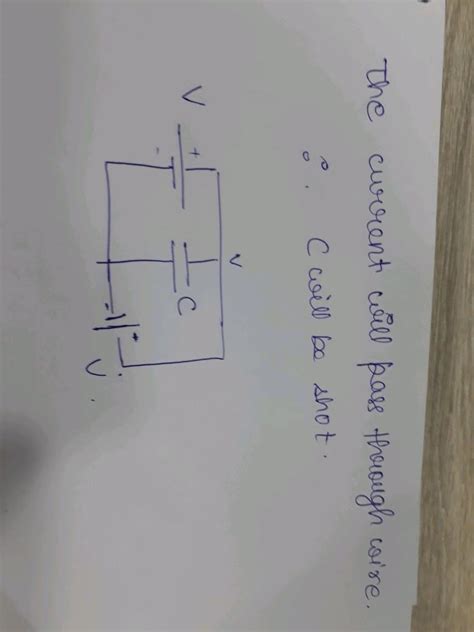 The current will pass through wire.
∴ C will be shot.
V
- +
V
C
- +
V